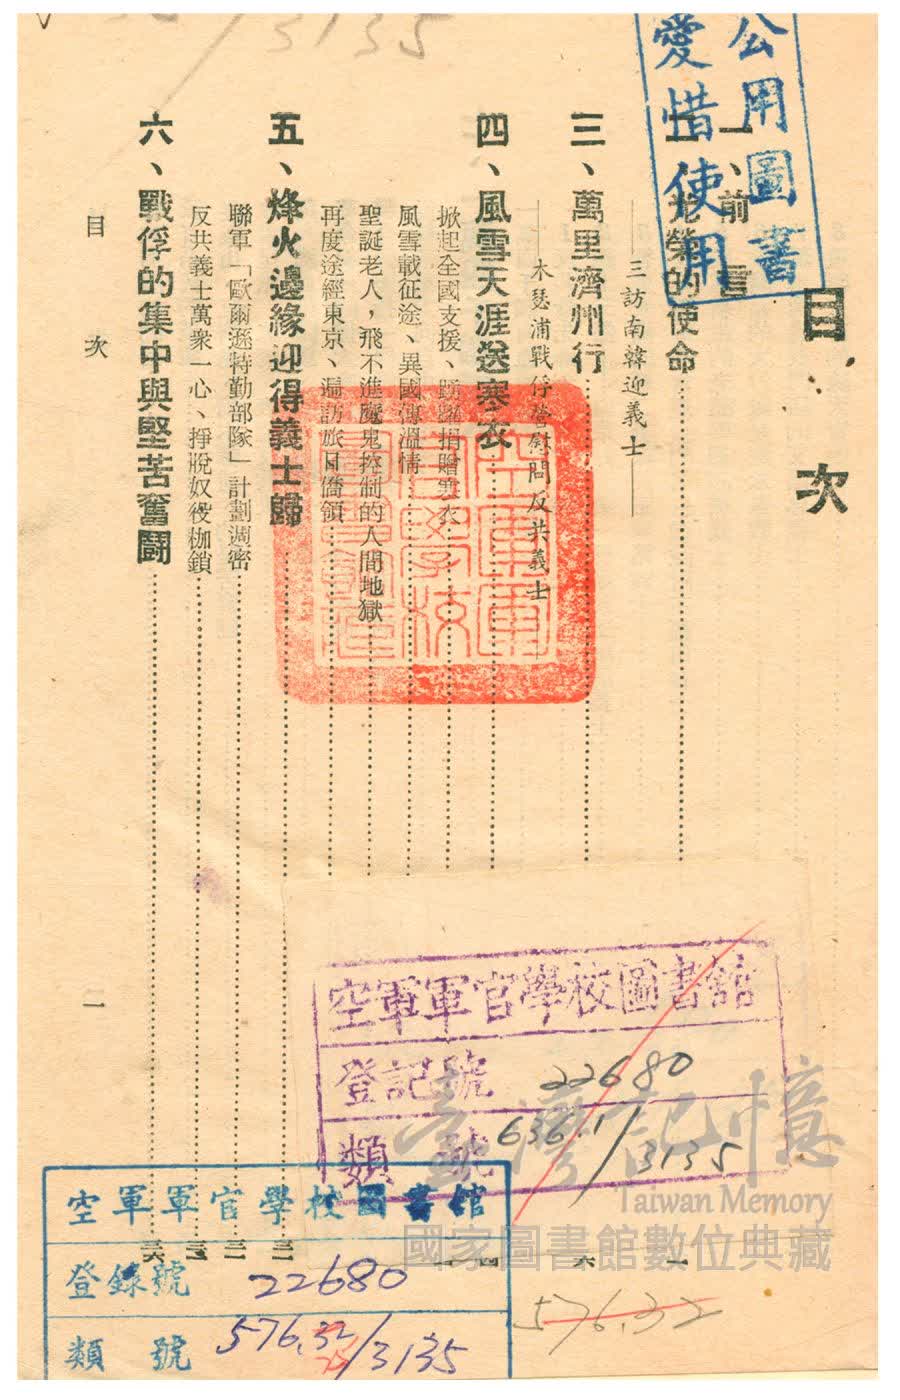 3135
公用圖書
愛惜使用
目次
一、前言
二、光榮的使命
——三訪南韓迎義士——
三、萬里濟州行
——木瑟浦戰俘營慰問反共義士——
四、風雪天涯送寒衣
掀起全國支援、踴躍捐贈寒衣
風雪載征途、異國傳溫情
聖誕老人，飛不進魔鬼控制的人間地獄
再度途經東京、遍訪旅日僑領
五、烽火邊緣迎得義士歸
聯軍「歐爾遜特勤部隊」計劃週密
反共義士萬衆一心、掙脫奴役枷鎖
六、戰俘的集中與堅苦奮鬪
目次
一
空軍軍官學校圖書館
登記號 22680
類號 636.1/3135
臺灣記憶
Taiwan Memory
國家圖書館數位典藏
空軍軍官學校圖書館
登錄號 22680
類號 576.32/3135
576.32